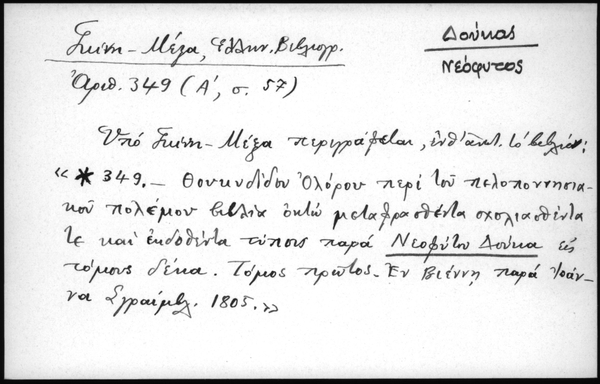 Γκίνη-Μέξα, Ελλην. Βιβλιογρ.
Δούκας
Νεόφυτος
Αριθ. 349 (Α', σ. 57)
Υπό Γκίνη-Μέξα περιγράφεται, το βιβλίον:
«✱ 349.— Θουκυδίδου Ολόρου περί του πελοποννησια-
κού πολέμου βιβλία οκτώ μεταφρασθέντα σχολιασθέντα
τε και εκδοθέντα τύποις παρά Νεοφύτου Δούκα εις
τόμους δέκα. Τόμος πρώτος. Εν Βιέννη παρά Ιοάν-
να Σγραίμβλ. 1805.»